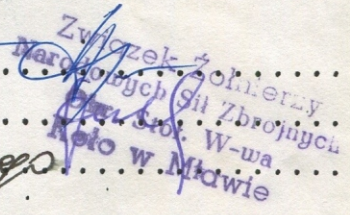 Związek Żołnierzy
Narodowych Sił Zbrojnych
Okr. Stoł. W-wa
Koło w Mławie